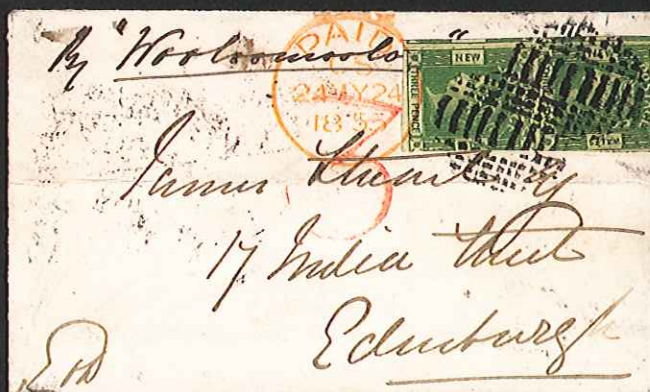 By "Woolloomooloo"
PAID
24 MY 24
NEW
THREE PENCE
James Stuart Esq
17 India Street
Edinburgh